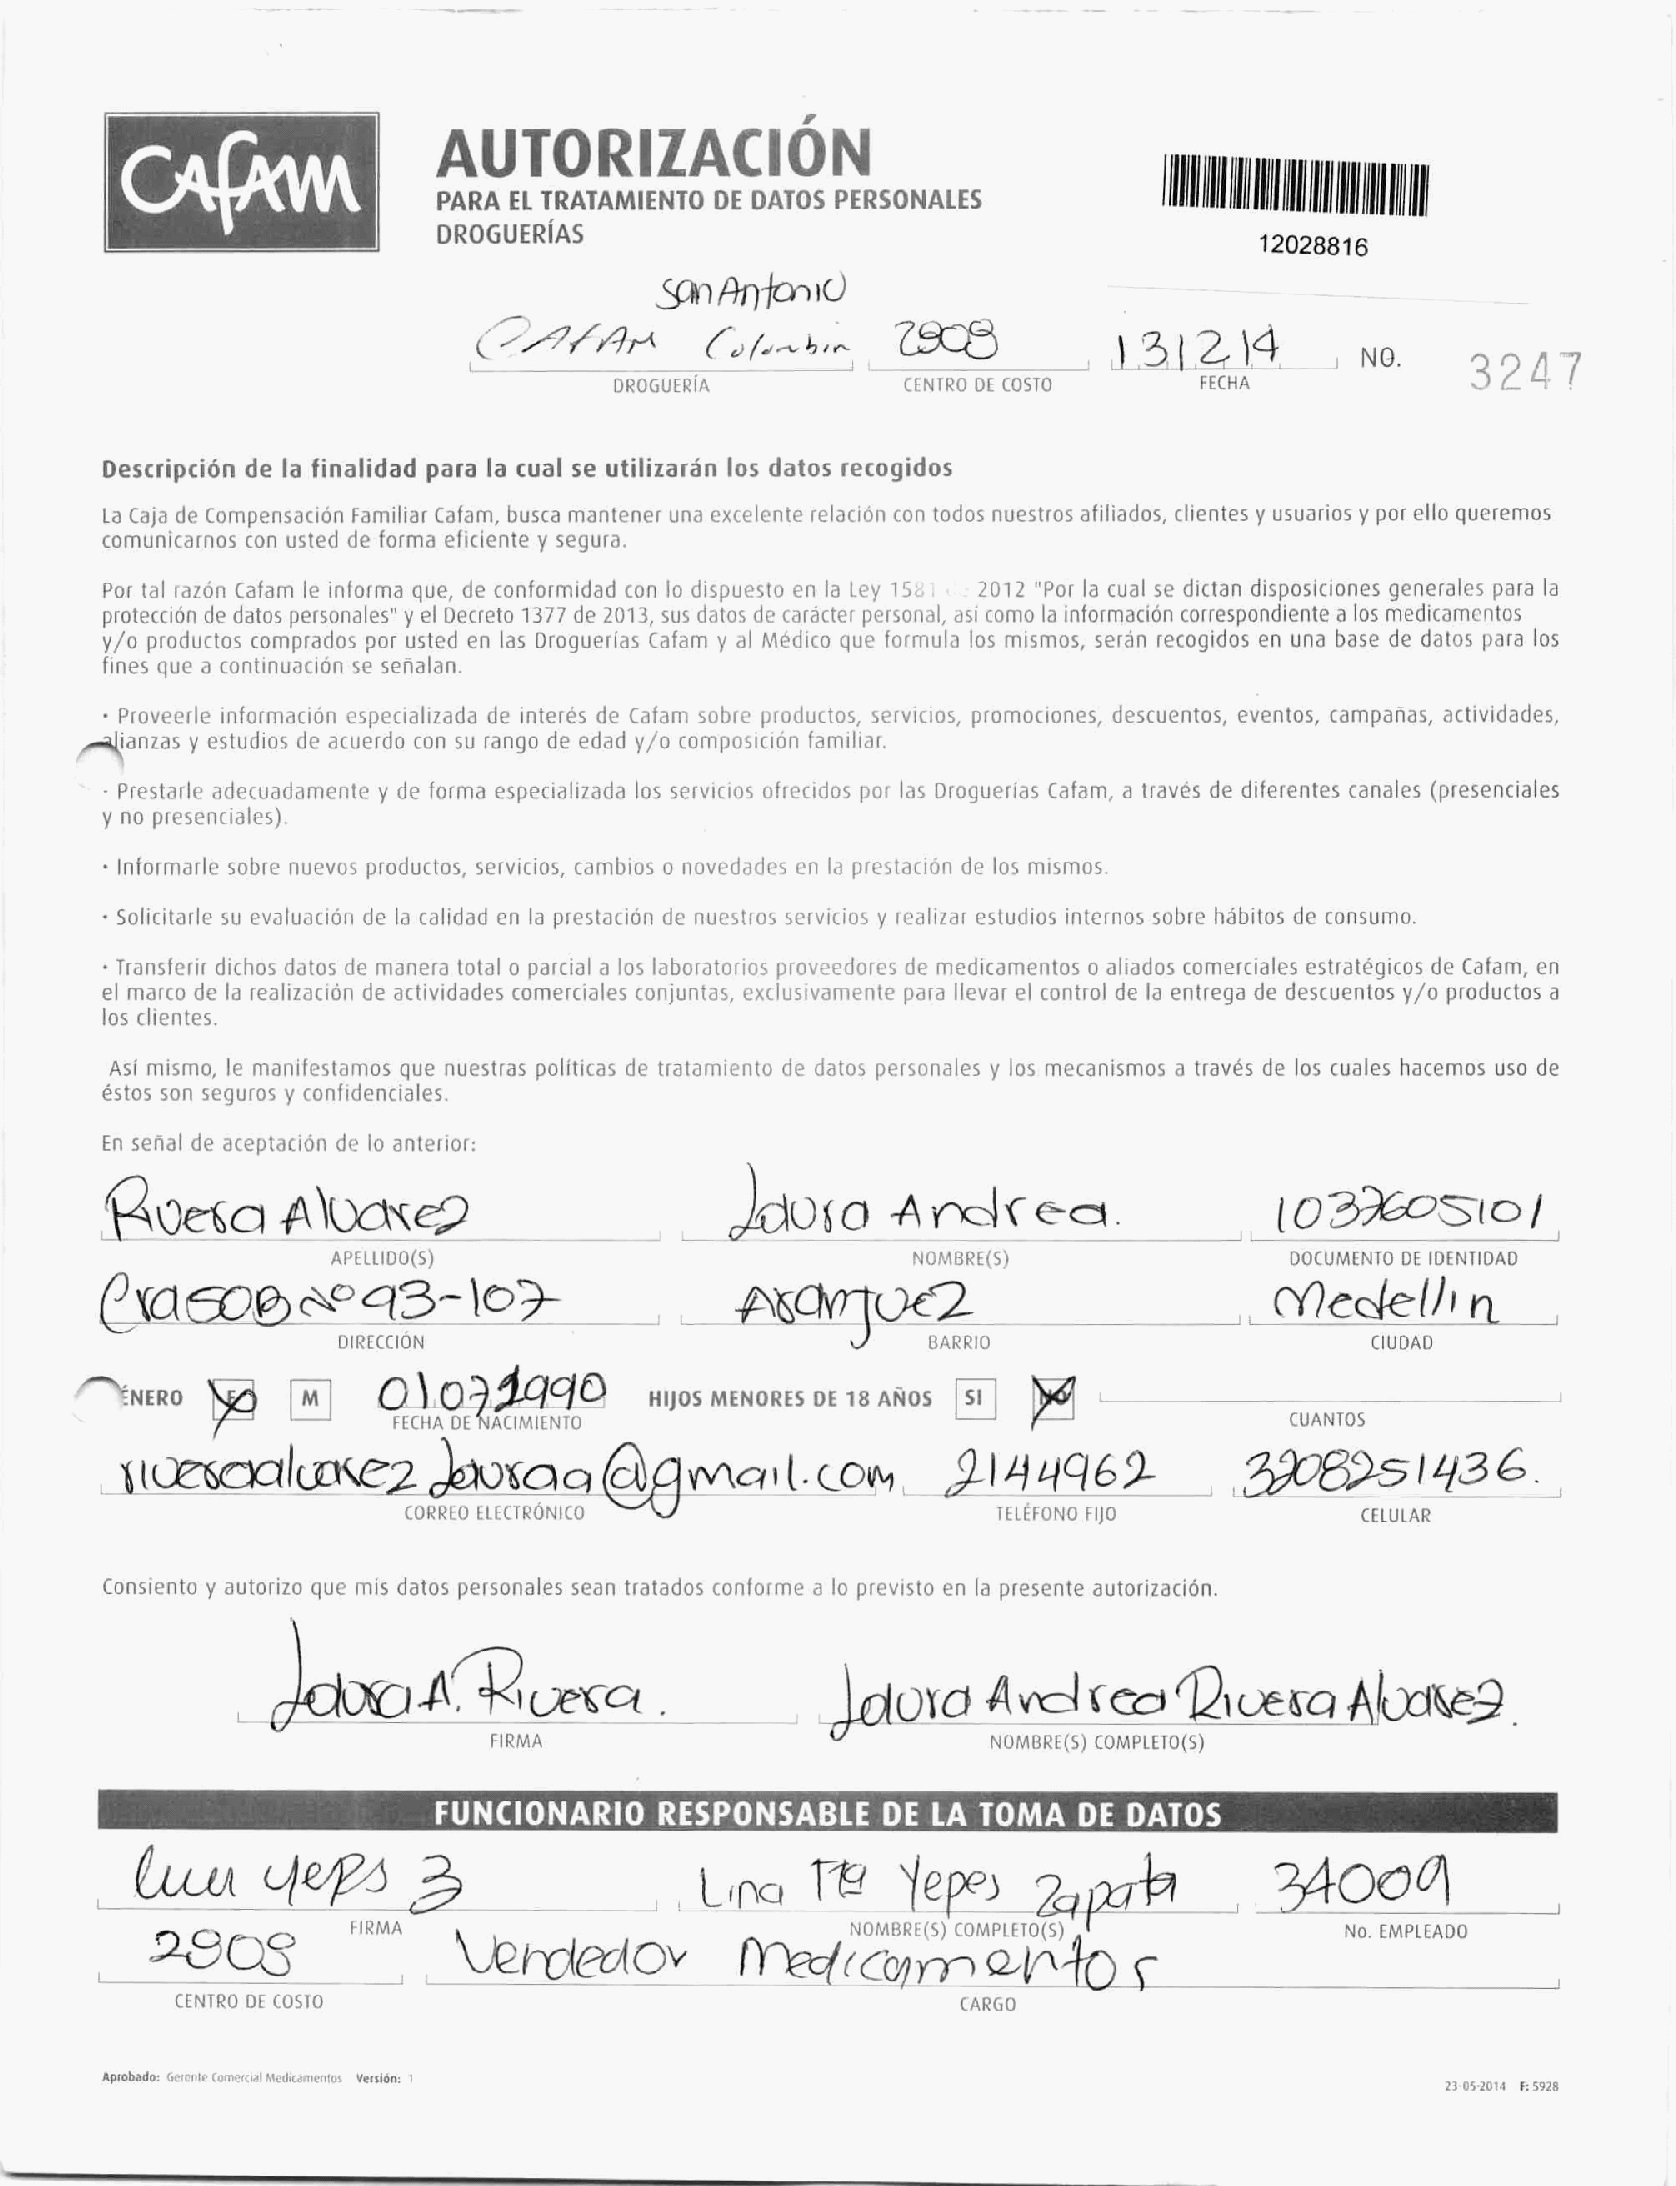 CAFAM
AUTORIZACIÓN
PARA EL TRATAMIENTO DE DATOS PERSONALES
DROGUERÍAS
12028816
San Antonio
CAFAM Colombia 2908 131214 NO. 3247
DROGUERÍA CENTRO DE COSTO FECHA
Descripción de la finalidad para la cual se utilizarán los datos recogidos
La Caja de Compensación Familiar Cafam, busca mantener una excelente relación con todos nuestros afiliados, clientes y usuarios y por ello queremos
comunicarnos con usted de forma eficiente y segura.
Por tal razón Cafam le informa que, de conformidad con lo dispuesto en la Ley 1581 2012 "Por la cual se dictan disposiciones generales para la
protección de datos personales" y el Decreto 1377 de 2013, sus datos de carácter personal, así como la información correspondiente a los medicamentos
y/o productos comprados por usted en las Droguerías Cafam y al Médico que formula los mismos, serán recogidos en una base de datos para los
fines que a continuación se señalan.
· Proveerle información especializada de interés de Cafam sobre productos, servicios, promociones, descuentos, eventos, campañas, actividades,
alianzas y estudios de acuerdo con su rango de edad y/o composición familiar.
· Prestarle adecuadamente y de forma especializada los servicios ofrecidos por las Droguerías Cafam, a través de diferentes canales (presenciales
y no presenciales).
· Informarle sobre nuevos productos, servicios, cambios o novedades en la prestación de los mismos.
· Solicitarle su evaluación de la calidad en la prestación de nuestros servicios y realizar estudios internos sobre hábitos de consumo.
· Transferir dichos datos de manera total o parcial a los laboratorios proveedores de medicamentos o aliados comerciales estratégicos de Cafam, en
el marco de la realización de actividades comerciales conjuntas, exclusivamente para llevar el control de la entrega de descuentos y/o productos a
los clientes.
Así mismo, le manifestamos que nuestras políticas de tratamiento de datos personales y los mecanismos a través de los cuales hacemos uso de
éstos son seguros y confidenciales.
En señal de aceptación de lo anterior:
Rivera Alvarez Laura Andrea. 1037605101
APELLIDO(S) NOMBRE(S) DOCUMENTO DE IDENTIDAD
Cra50B Nº 93-107 Aranjuez Medellin
DIRECCIÓN BARRIO CIUDAD
ÉNERO F M 01071990 HIJOS MENORES DE 18 AÑOS SI NO
FECHA DE NACIMIENTO CUANTOS
riveraalvarezlauraa@gmail.com 2144962 3208251436.
CORREO ELECTRÓNICO TELÉFONO FIJO CELULAR
Consiento y autorizo que mis datos personales sean tratados conforme a lo previsto en la presente autorización.
Laura A. Rivera. Laura Andrea Rivera Alvarez.
FIRMA NOMBRE(S) COMPLETO(S)
FUNCIONARIO RESPONSABLE DE LA TOMA DE DATOS
Lina Yepes Zapata 34009
FIRMA NOMBRE(S) COMPLETO(S) No. EMPLEADO
2908 Vendedor Medicamentos
CENTRO DE COSTO CARGO
Aprobado: Gerente Comercial Medicamentos Versión: 1
23-05-2014 F: 5928